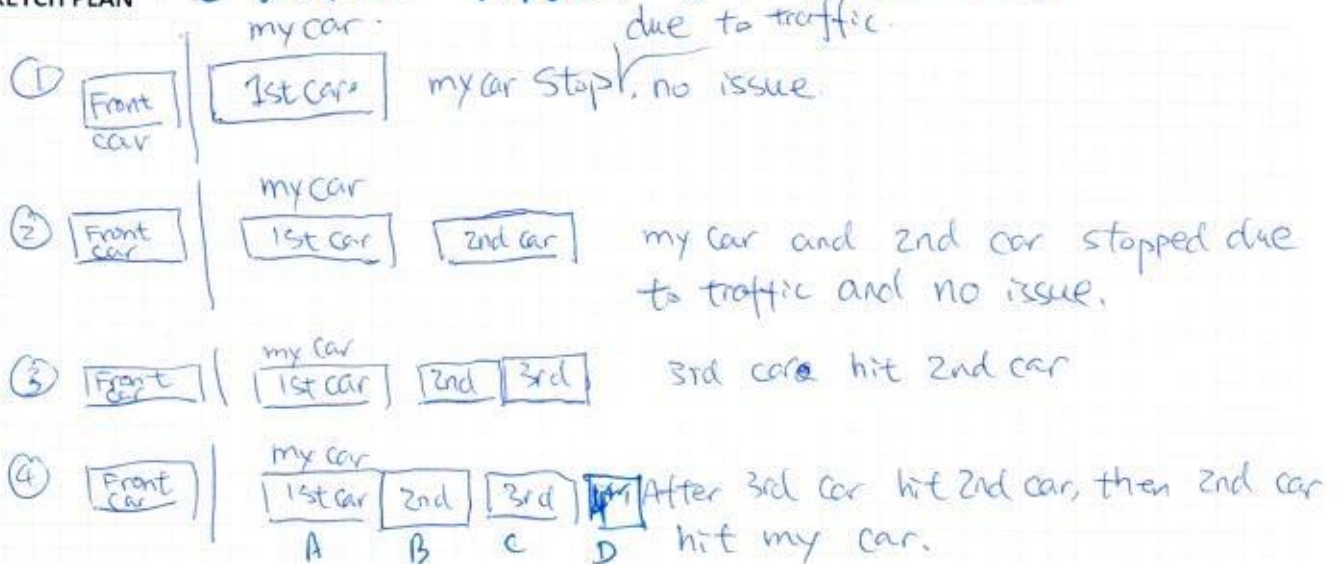 SKETCH PLAN
my car. due to traffic.
① Front car 1st car my car Stop, no issue.
my car
② Front car 1st car 2nd car my car and 2nd car stopped due
to traffic and no issue.
my car
③ Front car 1st car 2nd 3rd 3rd car hit 2nd car
my car
④ Front car 1st car 2nd 3rd After 3rd car hit 2nd car, then 2nd car
A B C D hit my car.